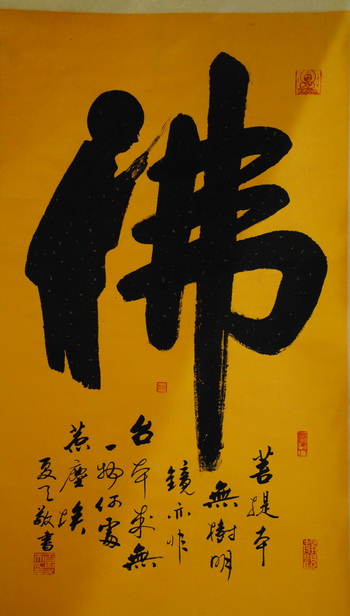 佛
菩提本
無樹明
鏡亦非
台本來無
一物何處
惹塵埃
夏天敬書